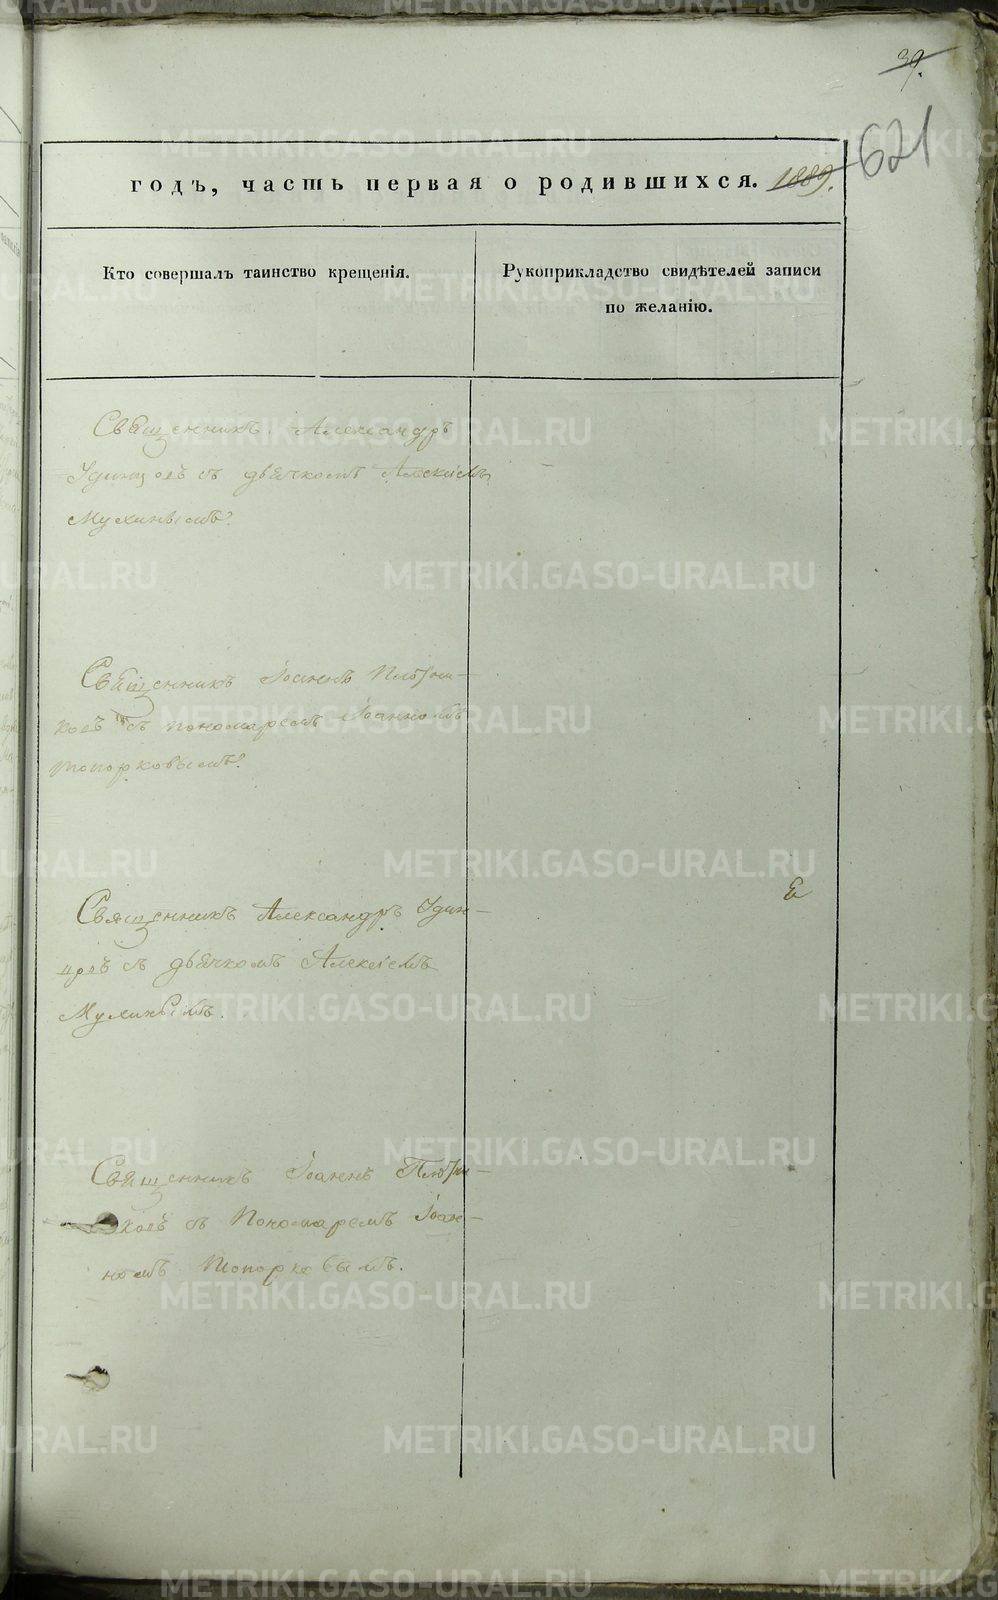 39.
621
годъ, часть первая о родившихся. 1889.
Кто совершалъ таинство крещенія.
Рукоприкладство свидѣтелей записи
по желанію.
Священникъ Александръ
Удинцовъ съ дьячкомъ Алексіемъ
Мухинымъ.
Священникъ Іоаннъ Плотни-
ковъ съ пономаремъ Іоанномъ
Топорковымъ.
Священникъ Александръ Удин-
цовъ съ дьячкомъ Алексіемъ
Мухинымъ.
Священникъ Іоаннъ Плотни-
ковъ съ Пономаремъ Іоан-
номъ Топорковымъ.
METRIKI.GASO-URAL.RU